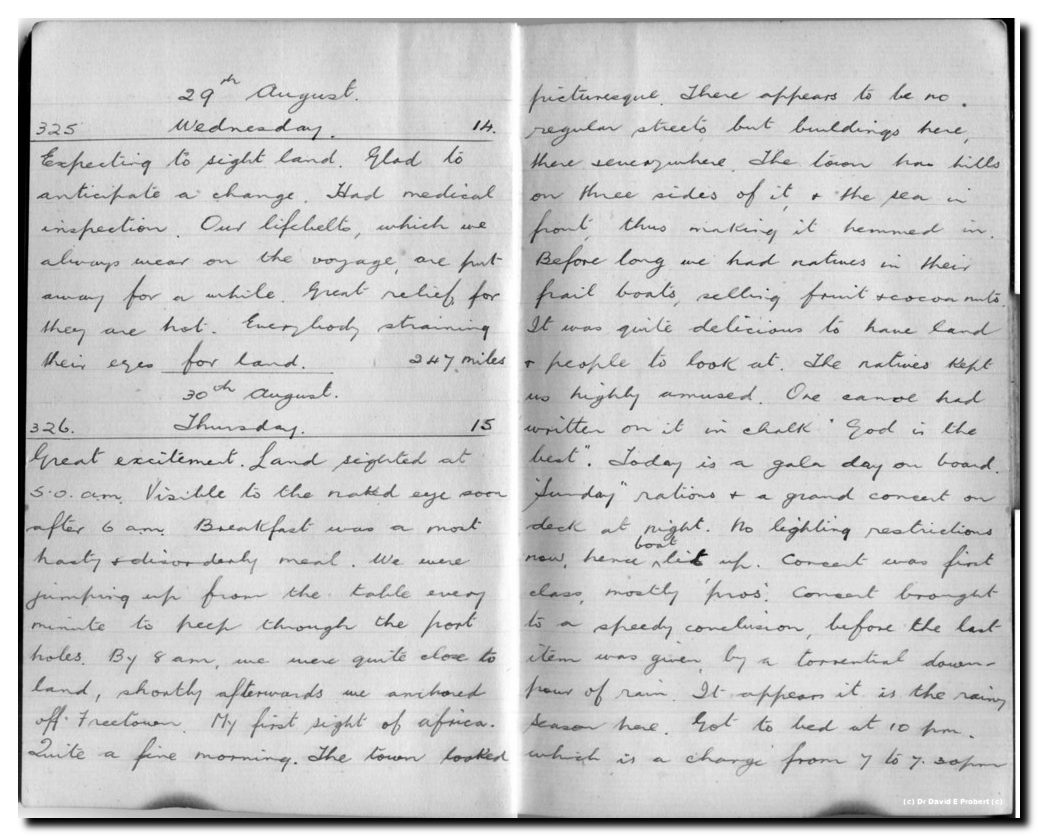 29th August.
325 Wednesday. 14.
Expecting to sight land. Glad to
anticipate a change. Had medical
inspection. Our lifebelts, which we
always wear on the voyage, are put
away for a while. Great relief, for
they are hot. Everybody straining
their eyes for land. 247 miles
30th August.
326. Thursday. 15
Great excitement. Land sighted at
5.0. am. Visible to the naked eye soon
after 6 am. Breakfast was a most
hasty & disorderly meal. We were
jumping up from the table every
minute to peep through the port
holes. By 8 am, we were quite close to
land, shortly afterwards we anchored
off Freetown. My first sight of africa.
Quite a fine morning. The town looked
picturesque. There appears to be no
regular streets but buildings here,
there & everywhere. The town has hills
on three sides of it, & the sea in
front, thus making it hemmed in.
Before long we had natives in their
frail boats, selling fruit & cocoa nuts.
It was quite delicious to have land
& people to look at. The natives kept
us highly amused. One canoe had
written on it in chalk "God is the
best". Today is a gala day on board.
"Sunday" rations & a grand concert on
deck at night. No lighting restrictions
now, hence boat lit up. Concert was first
class, mostly 'pros'. Concert brought
to a speedy conclusion, before the last
item was given, by a torrential down-
pour of rain. It appears it is the rainy
season here. Got to bed at 10 pm.
which is a change from 7 to 7.30pm
(c) Dr David E Probert (c)